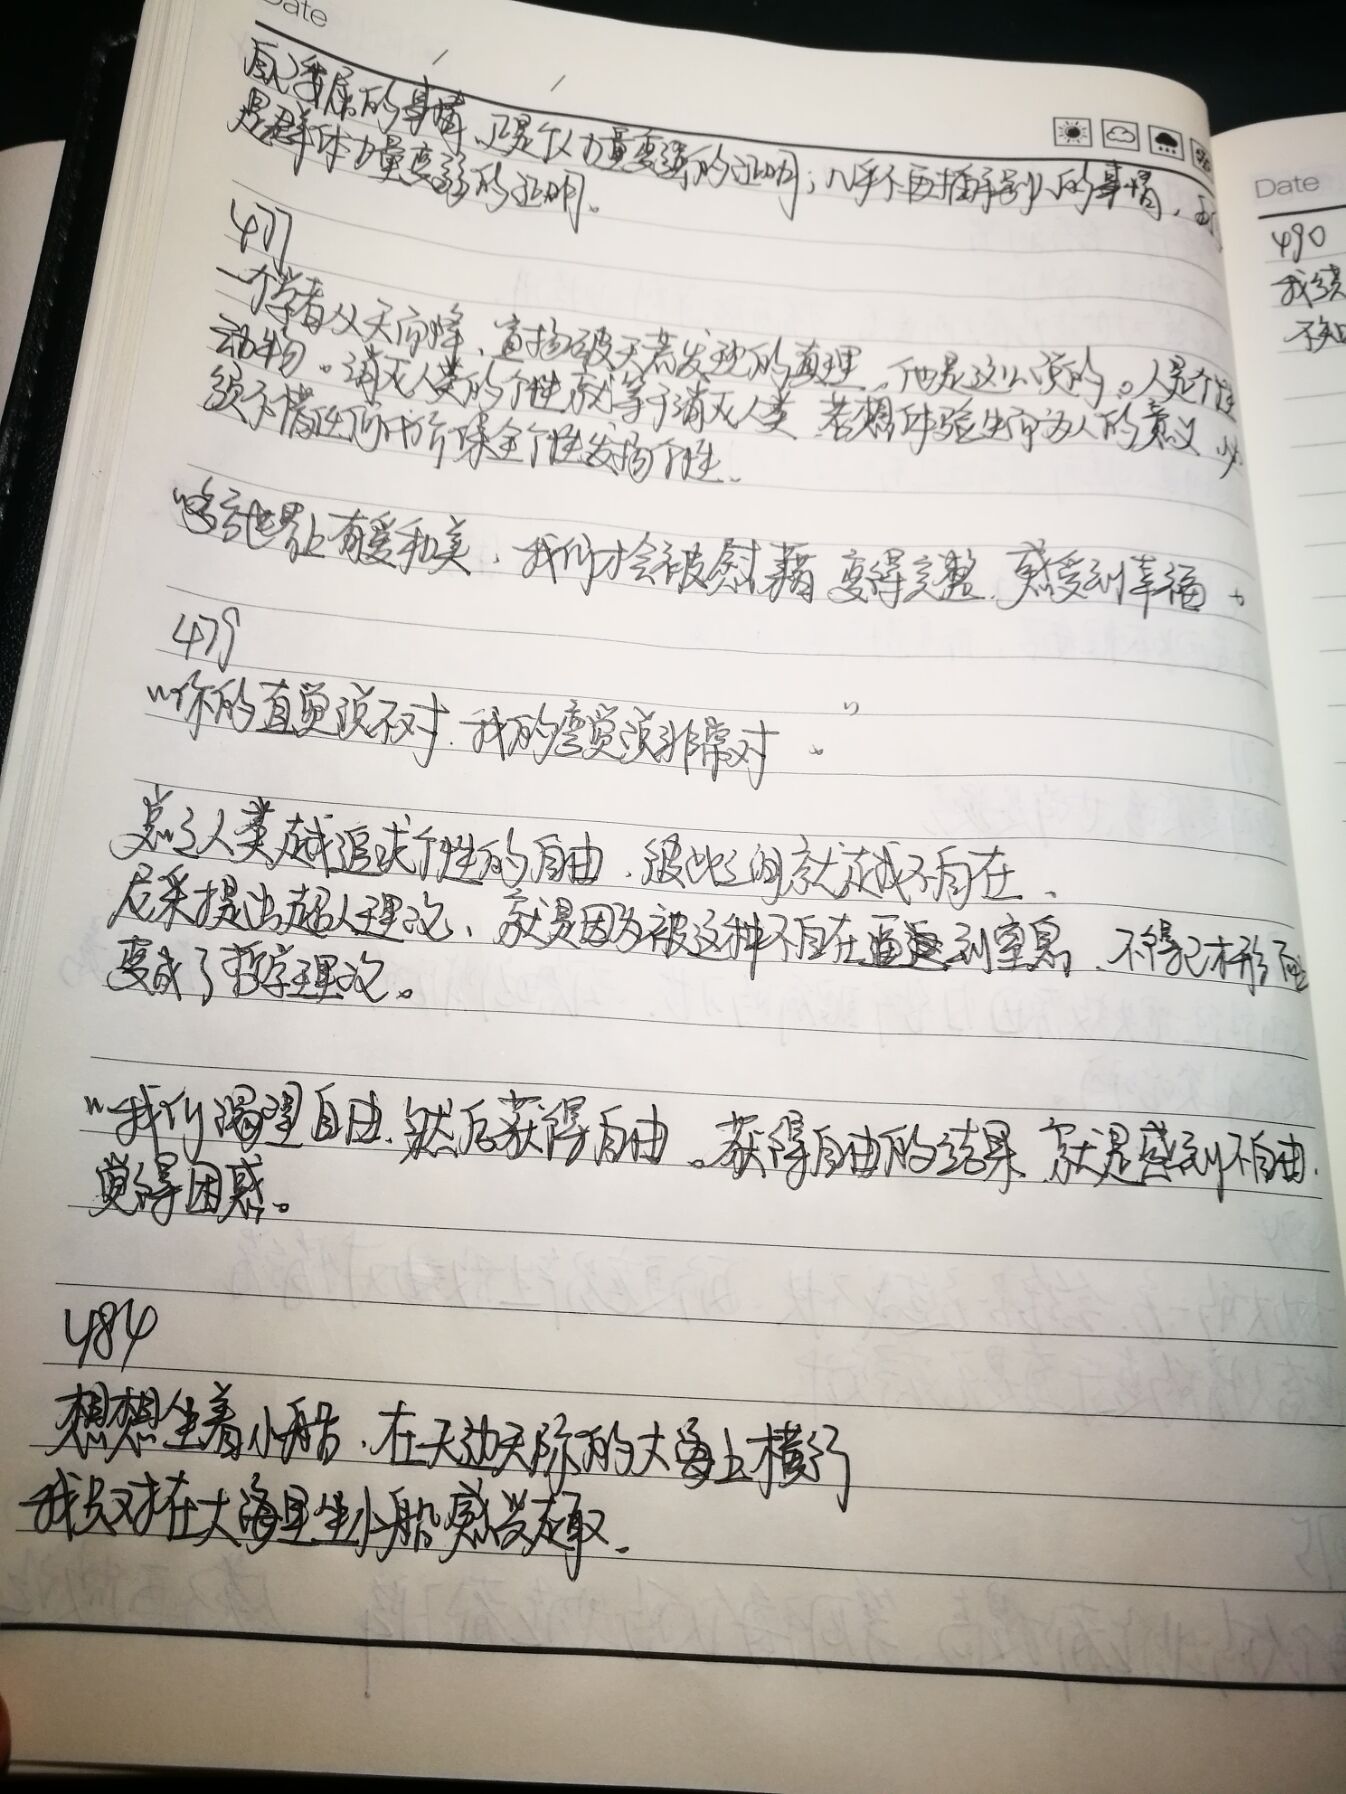 Date
的事情，正是个人力量变强的证明；几乎不再插手别人的事情，正
是群体力量变弱的证明。
477
一个学者从天而降，宣扬破天荒发现的真理。他是这么说的。人是个性
动物。消灭人类的个性就等于消灭人类 若想体验生而为人的意义 必
须不惜任何代价保全个性发扬个性。
世界上有爱和美，我们才会被慰藉 变得完整，感受到幸福。
479
“你的直觉说不对，我的 觉说非常对。”
总之人类越追求个性的自由，彼此之间就越不自在、
尼采提出超人理论、就是因为被这种不自在逼迫到窒息，不得已才形而上
变成了哲学理论。
“我们渴望自由，然后获得自由。获得自由的结果，就是感到不自由，
觉得困惑。
484
想想坐着小船，在天边天际的大海上横行
我只对在大海里坐小船感兴趣、
Date
490
我续
不知